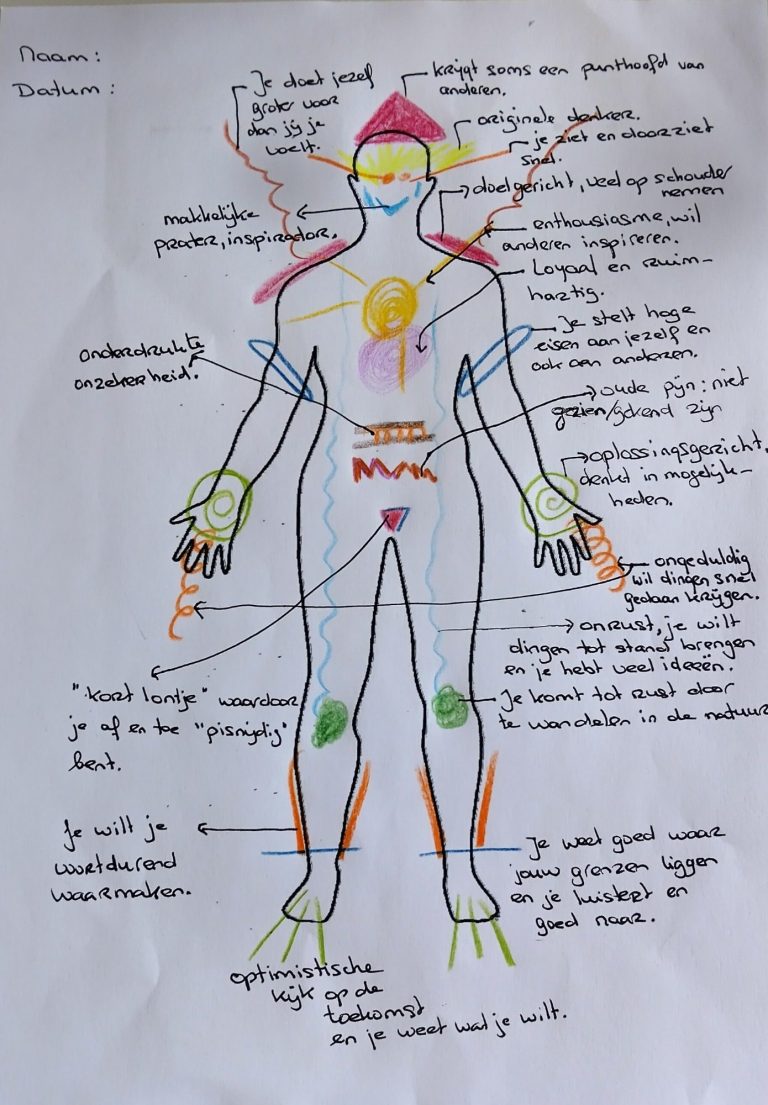 Naam:
Datum:
Je doet jezelf
groter voor
dan jij je
voelt.
krijgt soms een punthoofd van
anderen.
originele denker.
je ziet en doorziet
snel.
doelgericht, veel op schouder
nemen
makkelijke
prater, inspirador.
enthousiasme, wil
anderen inspireren.
Loyaal en ruim-
hartig.
Je stelt hoge
eisen aan jezelf en
ook aan anderen.
onderdrukte
onzekerheid.
oude pijn: niet
gezien/gekend zijn
oplossingsgericht,
denkt in mogelijk-
heden.
ongeduldig
wil dingen snel
gedaan krijgen.
onrust, je wilt
dingen tot stand brengen
en je hebt veel ideeën.
"kort lontje" waardoor
je af en toe "pisnijdig"
bent.
Je komt tot rust door
te wandelen in de natuur
Je wilt je
voortdurend
waarmaken.
Je weet goed waar
jouw grenzen liggen
en je luistert en
goed naar.
optimistische
kijk op de
toekomst
en je weet wat je wilt.